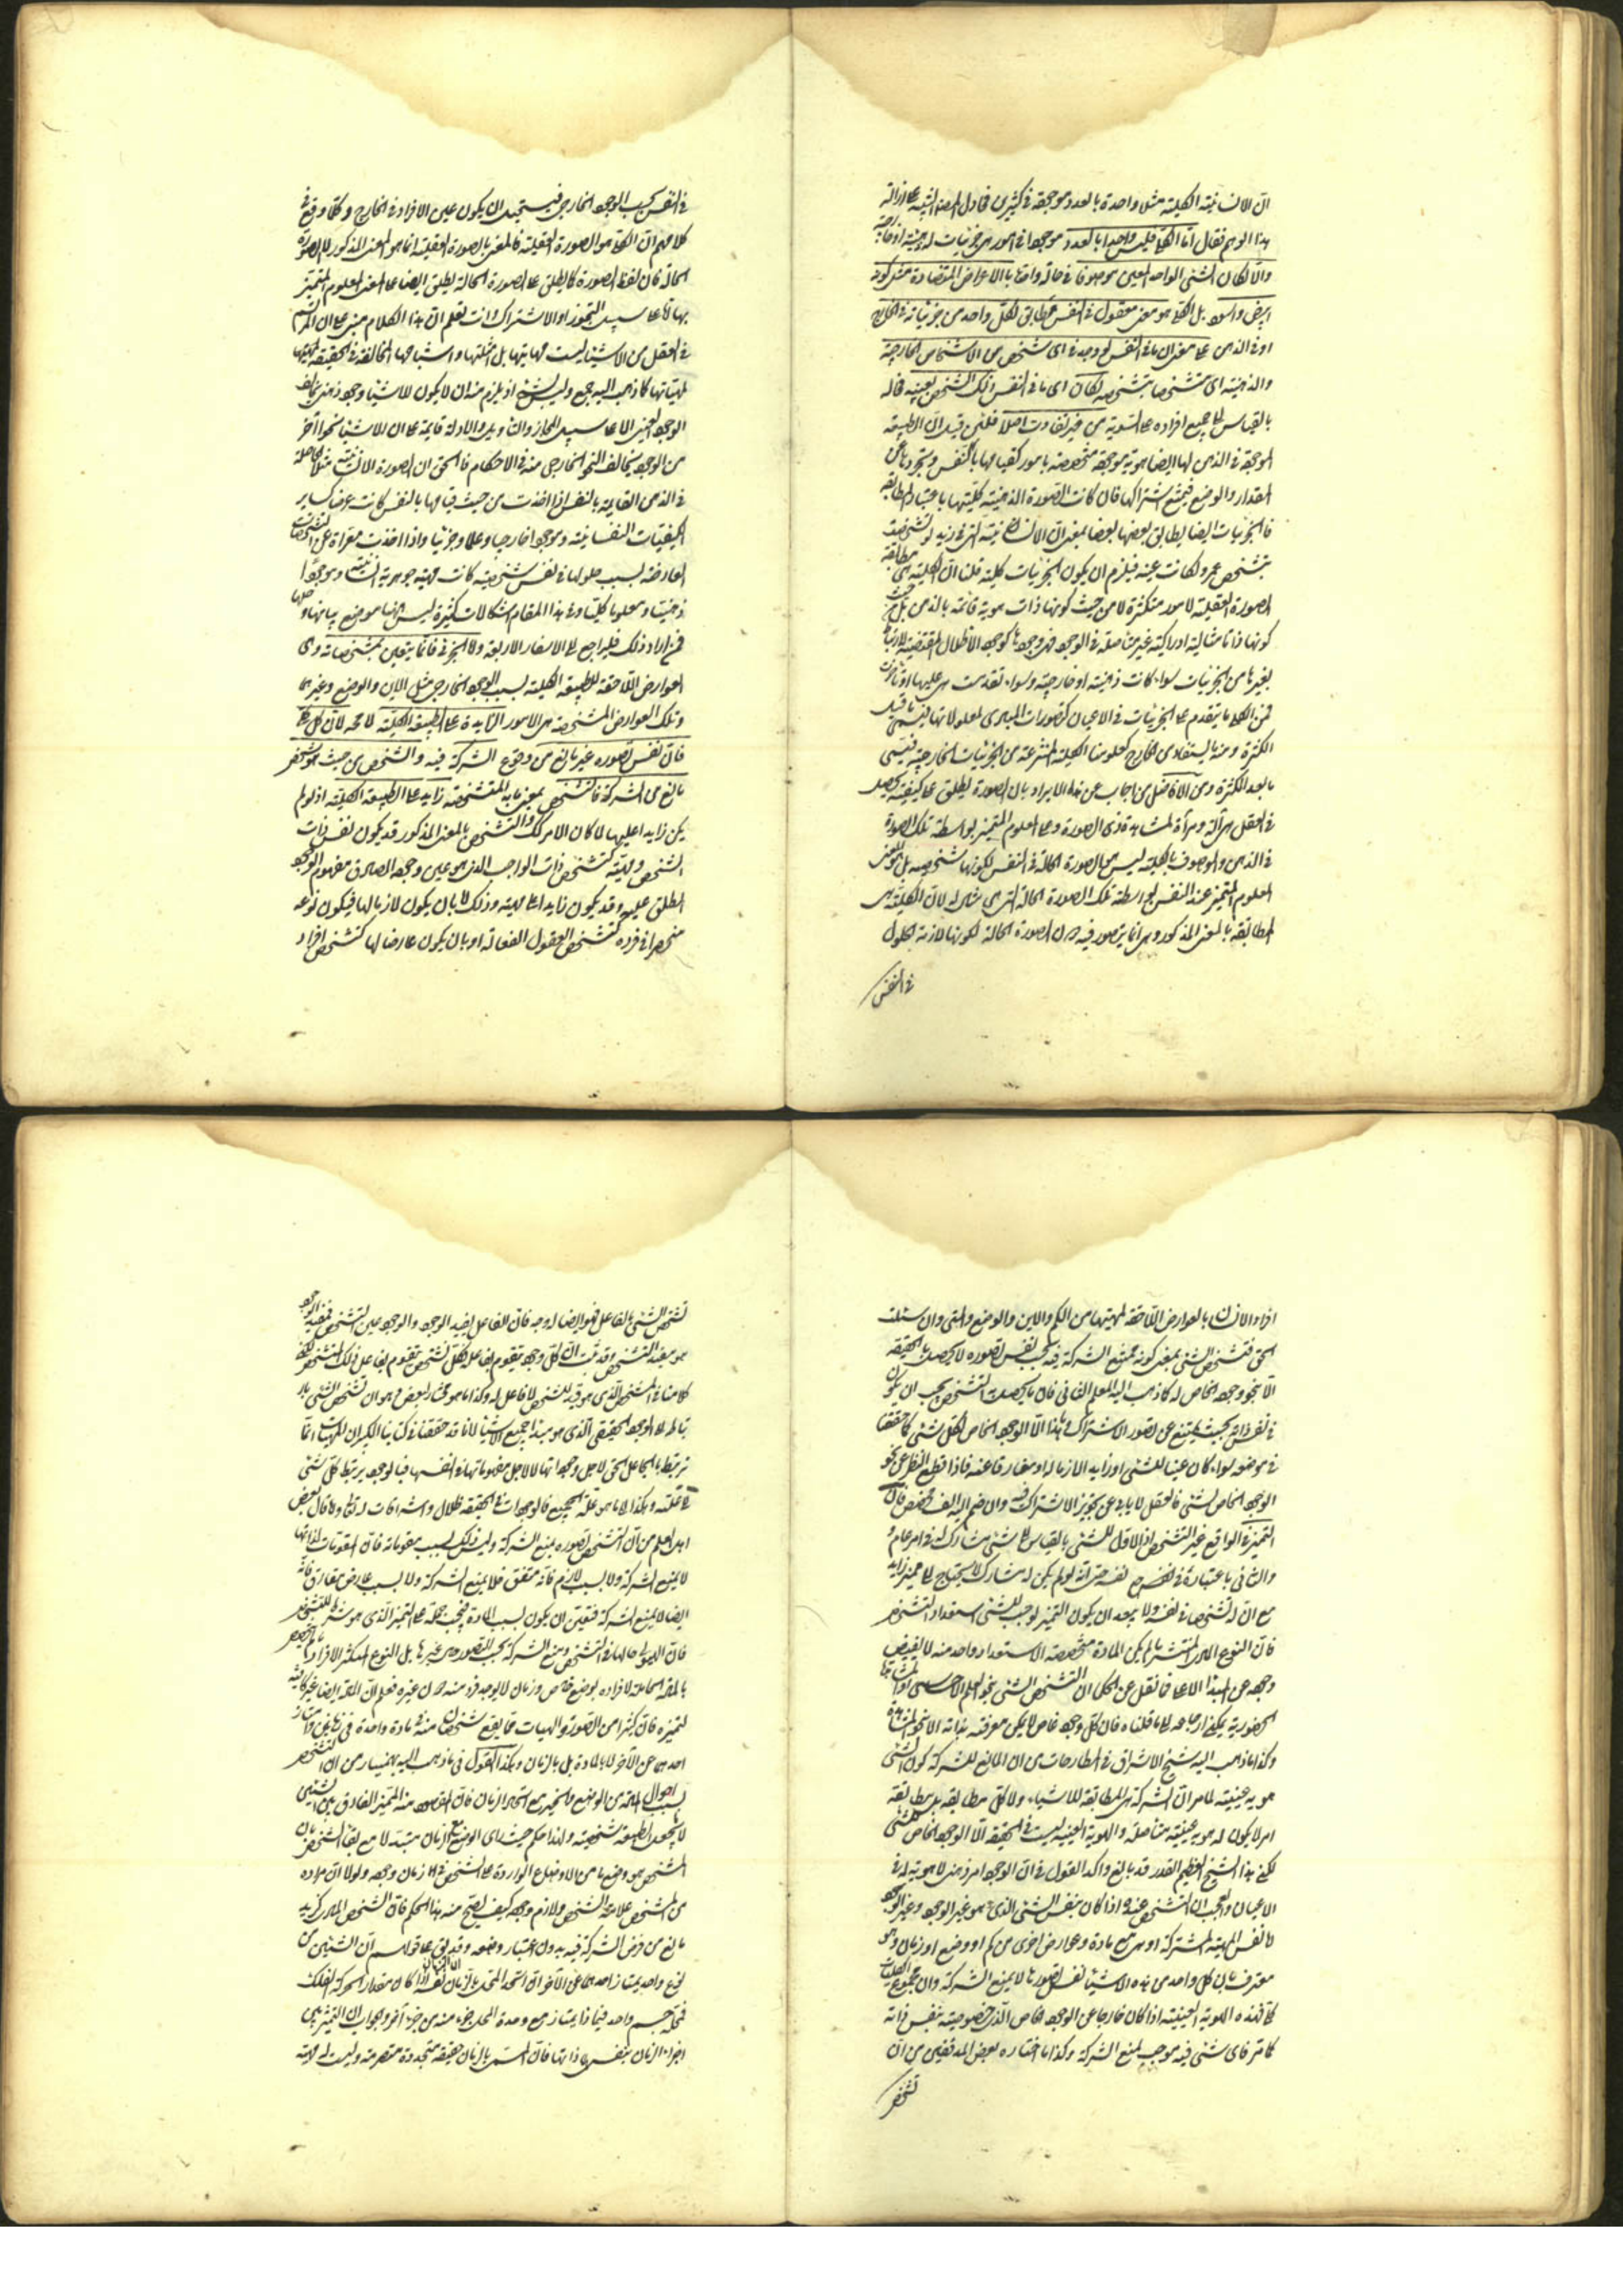 ان الانسانية الكلية مثلا واحدة بالعدد موجودة في كثيرين فحاول المصنف التنبيه على ازالة
هذا الوهم فقال اما الكلي فليس واحدا بالعدد موجودا في امور هي جزئيات له ذهنية او خارجية
والا لكان الشئ الواحد المعين موصوفا في حالة واحدة بالاعراض المتضادة مثل كونه
ابيض واسود بل الكلي هو معنى معقول في النفس مطابق لكل واحد من جزئياته في الخارج
او في الذهن على معنى ان ما في النفس لو وجد في اي شخص من الاشخاص الخارجية
والذهنية اي متشخصا بتشخصه لكان اي ما في النفس ذلك الشخص بعينه فاله
بالقياس الى جميع افراده على السوية من غير تفاوت اصلا فلئن قيل ان الطبيعة
الموجودة في الذهن لها ايضا هوية موجودة متخصصة بامور كقيامها بالنفس وتجردها عن
المقدار والوضع فيمتنع اشتراكها فان كانت الصورة الذهنية كليتها باعتبار المطابقة
فالجزئيات ايضا يطابق بعضها بعضا بمعنى ان الانسانية التي في زيد لو تشخصت
بتشخص عمرو لكانت عينه فيلزم ان يكون الجزئيات كلية قلنا ان الكلية هي مطابقة
الصورة العقلية لامور متكثرة لا من حيث كونها ذات هوية قائمة بالذهن بل من حيث
كونها ذاتا مثالية ادراكية غير متاصلة في الوجود فهي وجودها كوجود الاظلال المقتضية للارتباط
بغيرها من الجزئيات سواء كانت ذهنية او خارجية وسواء تقدمت هي عليها او تاخرت
فمن الكلي ما يتقدم على الجزئيات في الاعيان كتصورات المبادي لمعلولاتها فيسمى ما قبل
الكثرة ومنه ما يستفاد من الخارج كعلومنا الكلية المنتزعة من الجزئيات الخارجية فيسمى
ما بعد الكثرة ومن الافاضل من اجاب عن هذا الايراد بان الصورة يطلق على كيفية تحصل
في العقل هي آلة ومرآة لمشاهدة ذي الصورة وعلى المعلوم المتميز بواسطة تلك الصورة
في الذهن والموصوف بالكلية ليس هي الصورة الحالة في النفس لكونها شخصية بل هو المعنى
المعلوم المتميز عند النفس بواسطة تلك الصورة الحالة التي هي مثال له لان الكلية هي
المطابقة بالمعنى المذكور وهي انما يتصور فيه دون الصورة الحالة لكونها لازمة الحلول
في النفس
في النفس بحسب الوجود الخارجي فيستحيل ان يكون عين الافراد في الخارج وكلما وقع في
كلامهم ان الكلي هو الصورة العقلية فالمعنى بالصورة العقلية انما هو المعنى المذكور لا الصورة
الحالة فان لفظ الصورة كما يطلق على الصورة الحالة يطلق ايضا على المعنى المعلوم المتميز
بها على سبيل التجوز او الاشتراك وانت تعلم ان هذا الكلام مبني على ان المرتسم
في العقل من الاشياء ليست مهياتها بل امثلتها واشباحها المخالفة في الحقيقة لمهياتها
كما ذهب اليه جمع وليس بشئ اذ يلزم منه ان لا يكون للاشياء وجود ذهني يخالف
الوجود العيني الا على سبيل المجاز والتاويل والادلة قايمة على ان للاشياء نحوا آخر
من الوجود يخالف النحو الخارجي منه في الاحكام فالحق ان الصورة الانسانية مثلا الحاصلة
في الذهن القايمة بالنفس اذا اخذت من حيث قيامها بالنفس كانت عرضا كساير
الكيفيات النفسانية وموجودا خارجيا وعلما وجزئيا واذا اخذت معراة عن التشخصات
العارضة بسبب حلولها في نفس شخصية كانت مهية جوهرية انسانية وموجودا
ذهنيا ومعلوما كليا وفي هذا المقام اشكالات كثيرة ليس ههنا موضع بيانها وحلها
فمن اراد ذلك فليراجع الى الاسفار الاربعة واما الجزئي فانما يتعين بمشخصاته وهي
العوارض اللاحقة للطبيعة الكلية بسبب الوجود الخارجي مثل الاين والوضع وغيرها
وتلك العوارض المشخصة هي الامور الزايدة على الطبيعة الكلية لا محة لان كل كلي
فان نفس تصوره غير مانع من وقوع الشركة فيه والشخص من حيث هو شخص
مانع من الشركة فالتشخص بمعنى ما به المتشخصة زايد على الطبيعة الكلية اذ لو لم
يكن زايدا عليها لا كان الامر كك والتشخص بالمعنى المذكور قد يكون نفس ذات
الشخص ومهيته كتشخص ذات الواجب الذي هو عين وجوده الصادق مفهوم الوجود
المطلق عليه وقد يكون زايدا على مهيته وذلك اما بان يكون لازما لها فيكون نوعه
منحصرا في فرده كتشخص العقول الفعالة او بان يكون عارضا لها كتشخص افراد
افراد الانسان بالعوارض اللاحقة لمهيتها من الكم والاين والوضع والمتى وان سئلت
الحق فتشخص الشئ بمعنى كونه ممتنع الشركة فيه بحسب نفس تصوره لا يحصل بالحقيقة
الا بنحو وجوده الخاص له كما ذهب اليه المعلم الثاني فان ما يحصل به التشخص يجب ان يكون
في نفس ذاته بحيث يمتنع عن تصور الاشتراك وما هذا الا الوجود الخاص لكل شئ كما حققنا
في موضعه سواء كان عينا للشئ او زايدا لازما له او مفارقا عنه فاذا قطع النظر عن نحو
الوجود الخاص لشئ فالعقل لا يابى عن تجويز الاشتراك فيه وان ضم اليه الف مخصص فان
التميز في الواقع غير التشخص اذ الاول للشئ بالقياس الى شئ مشاركه في امر عام و
والثاني باعتباره في نفسه حتى انه لو لم يكن له مشارك لا يحتاج الى مميز زايد
مع ان له تشخصا في نفسه ولا يبعد ان يكون التميز يوجب للشئ استعداد التشخص
فان النوع المادي المنتشر ما لم يكن المادة متخصصة الاستعداد لواحد منه لا يفيض
وجوده عن المبدأ الاعلى فما نقل عن الحكماء ان التشخص الشئ بنحو العلم الاحساسي او المشاهدة
الحضورية يمكن ارجاعه الى ما قلناه فان كل وجود خاص لا يمكن معرفته بذاته الا بنحو المشاهدة
وكذا ما ذهب اليه شيخ الاشراق في المطارحات من ان المانع للشركة كون الشئ
هوية عينية لا امر ان الشركة هي المطابقة للاشياء ولا كل مطابقة بل مطابقة
امر لا يكون له هوية عينية متاصلة والهوية العينية ليست في الحقيقة الا الوجود الخاص للشئ
لكن هذا الشيخ العظيم القدر قد بالغ واكد القول في ان الوجود امر ذهني لا هوية له في
الاعيان والعجب ان التشخص عنده اذا كان بنفس الشئ الذي هو غير الوجود وغير الوجود
اما نفس المهية المشتركة او هي مع مادة وعوارض اخرى من كم او وضع او زمان وهو
معترف بان كل واحد من هذه الاشياء نفس تصورها لا يمنع الشركة وان مجموع الكليات
كلي فهذه الهوية العينية اذا كان خارجا عن الوجود الخاص الذي خصوصيته بنفس ذاته
كما مر فاي شئ فيه موجب لمنع الشركة وكذا ما اختاره بعض المدققين من ان
تشخص
تشخص الشئ بالفاعل فهو ايضا له وجه فان الفاعل يفيد الوجود والوجود عين التشخص فمفيد الوجود
هو مفيد التشخص وقد ثبت ان كل وجود يتقوم بفاعله فكل تشخص يتقوم بفاعل ذلك التشخص لكن
كلامنا في المشخص الذي هو قيد للشخص لا فاعل له وكذا ما هو مختار بعض وهو ان تشخص الشئ بار
تباطه الى الوجود الحقيقي الذي هو مبدأ جميع الاشياء لانا قد حققنا في كتابنا الكبير ان المهيات انما
ترتبط بالجاعل الحق لاجل وجوداتها لا لاجل مفهوماتها في انفسها فبالوجود يرتبط كل شئ
الى علته وهكذا الى ما هو علة الجميع فالوجودات في الحقيقة ظلال واشراقات له تعالى وما قال بعض
اهل العلم من ان التشخص تصوره يمنع الشركة وليس ذلك بسبب مقوماته فان المقومات لذاتها
لا يمنع الشركة ولا بسبب لازم فانه متفق فلا يمنع الشركة ولا بسبب عارض مفارق فانه
ايضا لا يمنع الشركة فتعين ان يكون بسبب المادة فيجب حمله على التميز الذي هو شرط للتشخص
فان الهيولى حالها في التشخص ومنع الشركة بحسب التصور دون غيرها بل النوع المتكثر الافراد ما لم يتخصص
بالمادة الحاملة لافراده بوضع خاص وزمان لا يوجد فرد منه دون غيره فعلم ان المادة ايضا غير كافية
لتميزه فان كثيرا من الصور والهيآت مما يقع شخصان منه في مادة واحدة في زمانين وامتياز
احدهما عن الآخر لا بالمادة بل بالزمان وهكذا القول في ما ذهب اليه بهمنيار من ان التشخص
بسبب احوال المادة من الوضع والحيز مع اتحاد الزمان فان المقصود منه المميز الفارق بين الشيئين
لا ما يجعل الطبيعة شخصية ولهذا حكم حيث راى الوضع مع الزمان متبدلا مع بقاء الشخص بان
المشخص هو وضع ما من الاوضاع الواردة على الشخص في زمان وجوده ولولا ان مراده
من المشخص علامة الشخص ولازم وجوده كيف يصح منه هذا الحكم فان الشخص المادي كزيد
مانع من فرض الشركة فيه بدون اعتبار وضعه وقد بقي على قولهم ان الشيئين من
نوع واحد يمتاز احدهما عن الآخر ان اتحد المحل بالزمان ان الزمان نفسه اذا كان مقدار الحركة الفلك
فمحله جسم واحد فبماذا يمتاز مع وحدة المحل جزء منه من جزء آخر والجواب ان التميز بين
اجزاء الزمان بنفس ذاتها فان المسمى بالزمان حقيقة متجددة متصرمة وليست له مهية